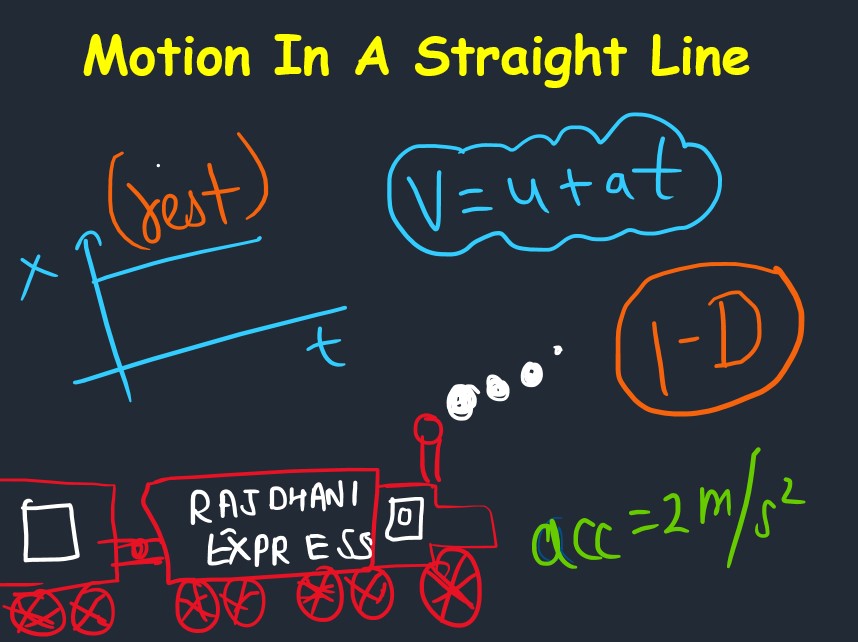 Motion In A Straight Line
(rest)
V = u + at
x
t
1-D
RAJDHANI
EXPRESS
acc = 2 m/s²